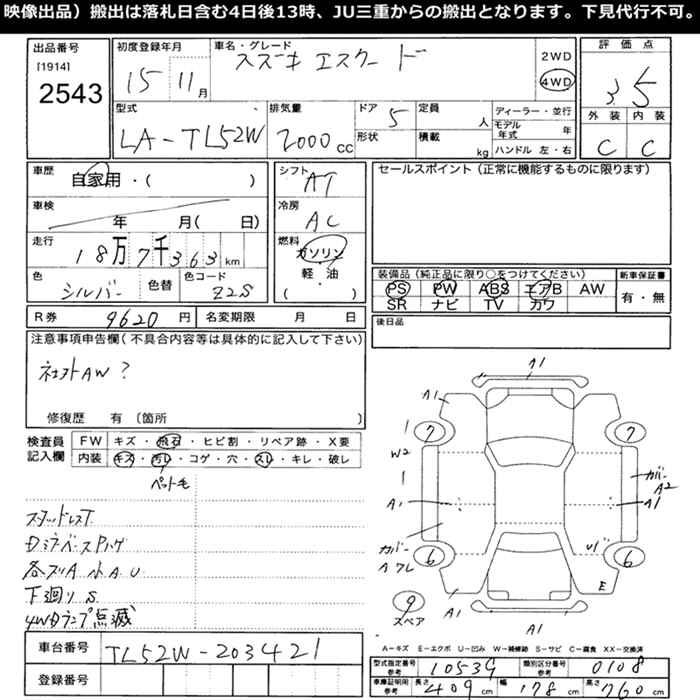 映像出品）搬出は落札日含む4日後13時、JU三重からの搬出となります。下見代行不可。
出品番号
[1914]
2543
初度登録年月
15 11月
車名・グレード
スズキ エスクード
2WD
4WD
評価点
3.5
外装 内装
C C
型式
LA-TL52W
排気量
2000 CC
ドア 5
形状
定員 人
積載 kg
ディーラー・並行
モデル年式 年
ハンドル 左・右
車歴
自家用・( )
車検
年 月( 日)
走行
18万7千363km
色 シルバー 色替 色コード Z2S
シフト
AT
冷房
AC
燃料
ガソリン
・
軽・油
( )
セールスポイント（正常に機能するものに限ります）
装備品（純正品に限り○をつけてください） 新車保証書
PS PW ABS エアB AW
SR ナビ TV カワ
有・無
R券 9620円 名変期限 月 日
後日品
注意事項申告欄（不具合内容等は具体的に記入して下さい）
社外AW?
修復歴 有 〔箇所
検査員記入欄
FW キズ・飛石・ヒビ割・リペア跡・X要
内装 キズ・汚レ・コゲ・穴・スレ・キレ・破レ
ペット毛
スタッドレスT
各スリA 小AU
下廻りS
4WDランプ点滅
車台番号 TL52W-203421
登録番号
A1
A1 A1
7 7
1
W2
1
カバー
A2
A1 A1
カバー
A ワレ
6 6
E
9
スペア
A1 A1
A1
A－キズ E－エクボ U－凹み W－補修跡 S－サビ C－腐食 XX－交換済
型式指定番号 参考 10534 類別区分番号 参考 0108
車庫証明用 参考 長さ 409cm 幅 178cm 高さ 760cm